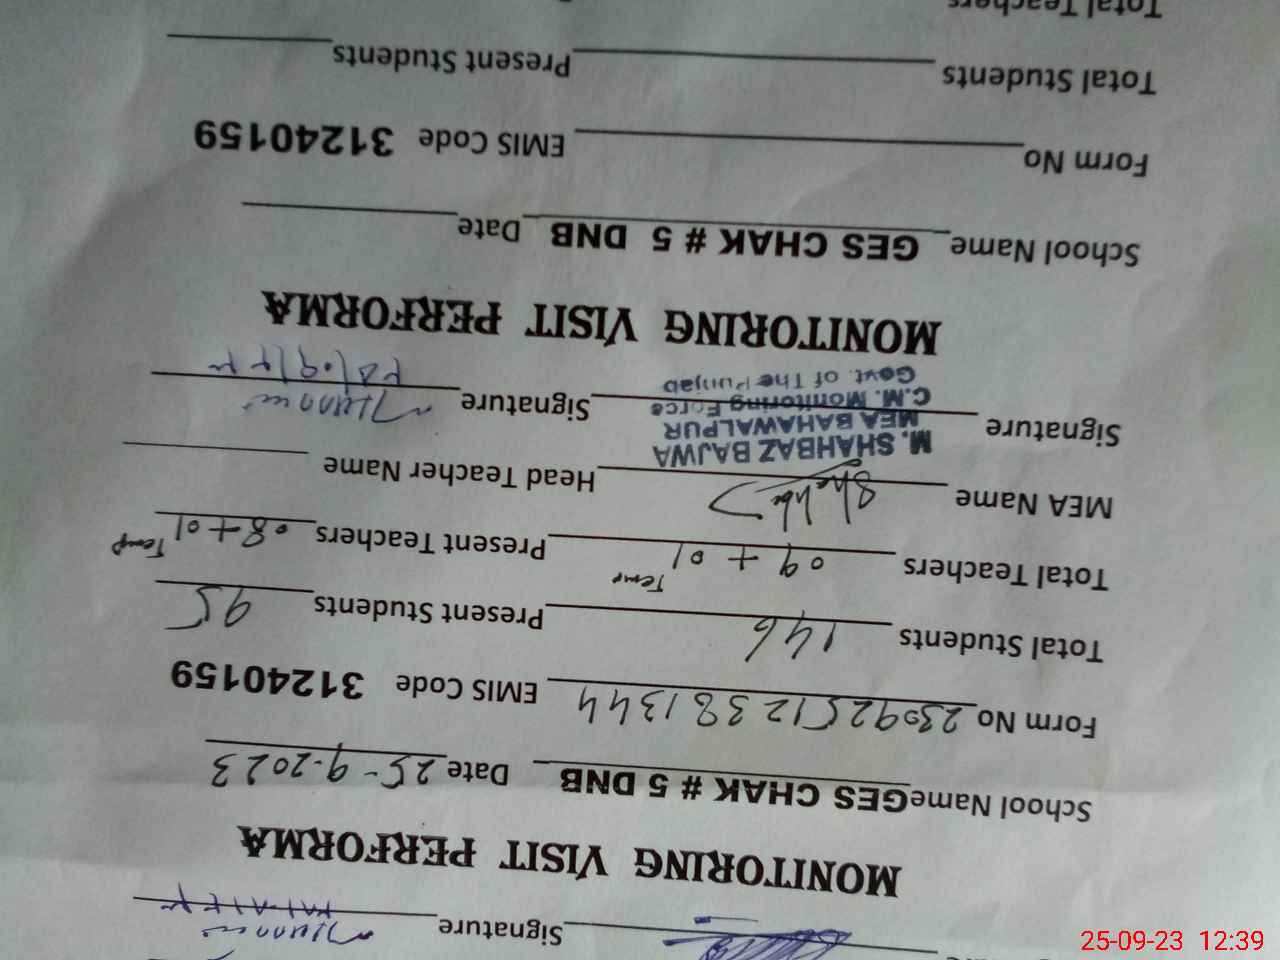 Signature Signature
MONITORING VISIT PERFORMA
School Name GES CHAK # 5 DNB Date 25-9-2023
Form No 23092512381344 EMIS Code 31240159
Total Students 146 Present Students 95
Total Teachers 09 + 01 Temp Present Teachers 08 + 01 Temp
MEA Name Head Teacher Name
M. SHAHBAZ BAJWA
MEA BAHAWALPUR
C.M. Monitoring Force
Govt. of The Punjab
Signature Signature
MONITORING VISIT PERFORMA
School Name GES CHAK # 5 DNB Date
Form No EMIS Code 31240159
Total Students Present Students
Total Teachers
25-09-23 12:39